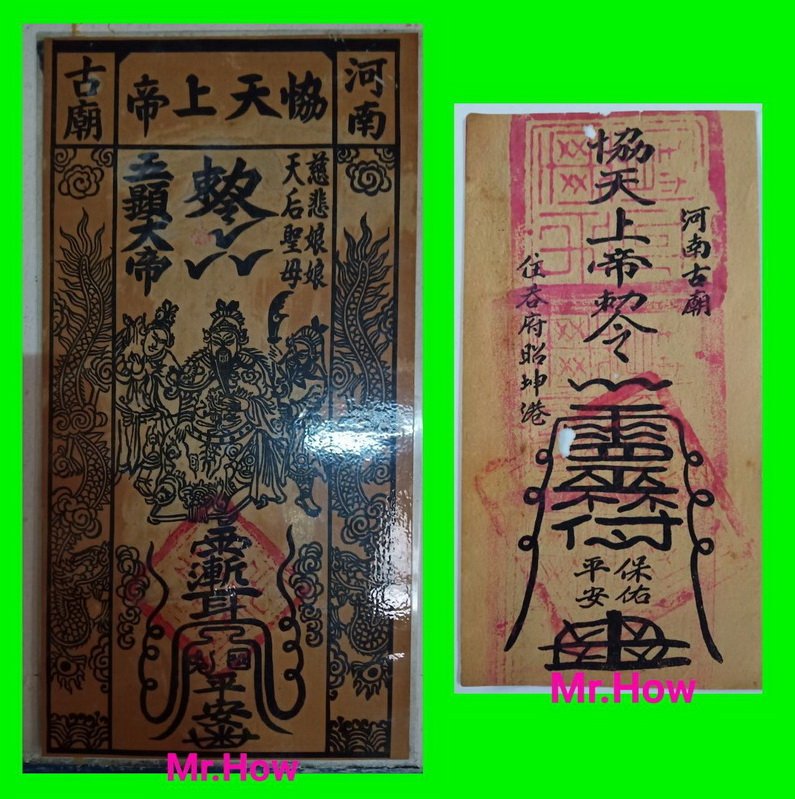 河南
恊天上帝
古廟
慈悲娘娘
天后聖母
五顯大帝
平安
Mr.How
河南古廟
恊天上帝勅令
住吞府昭坤港
保佑
平安
Mr.How